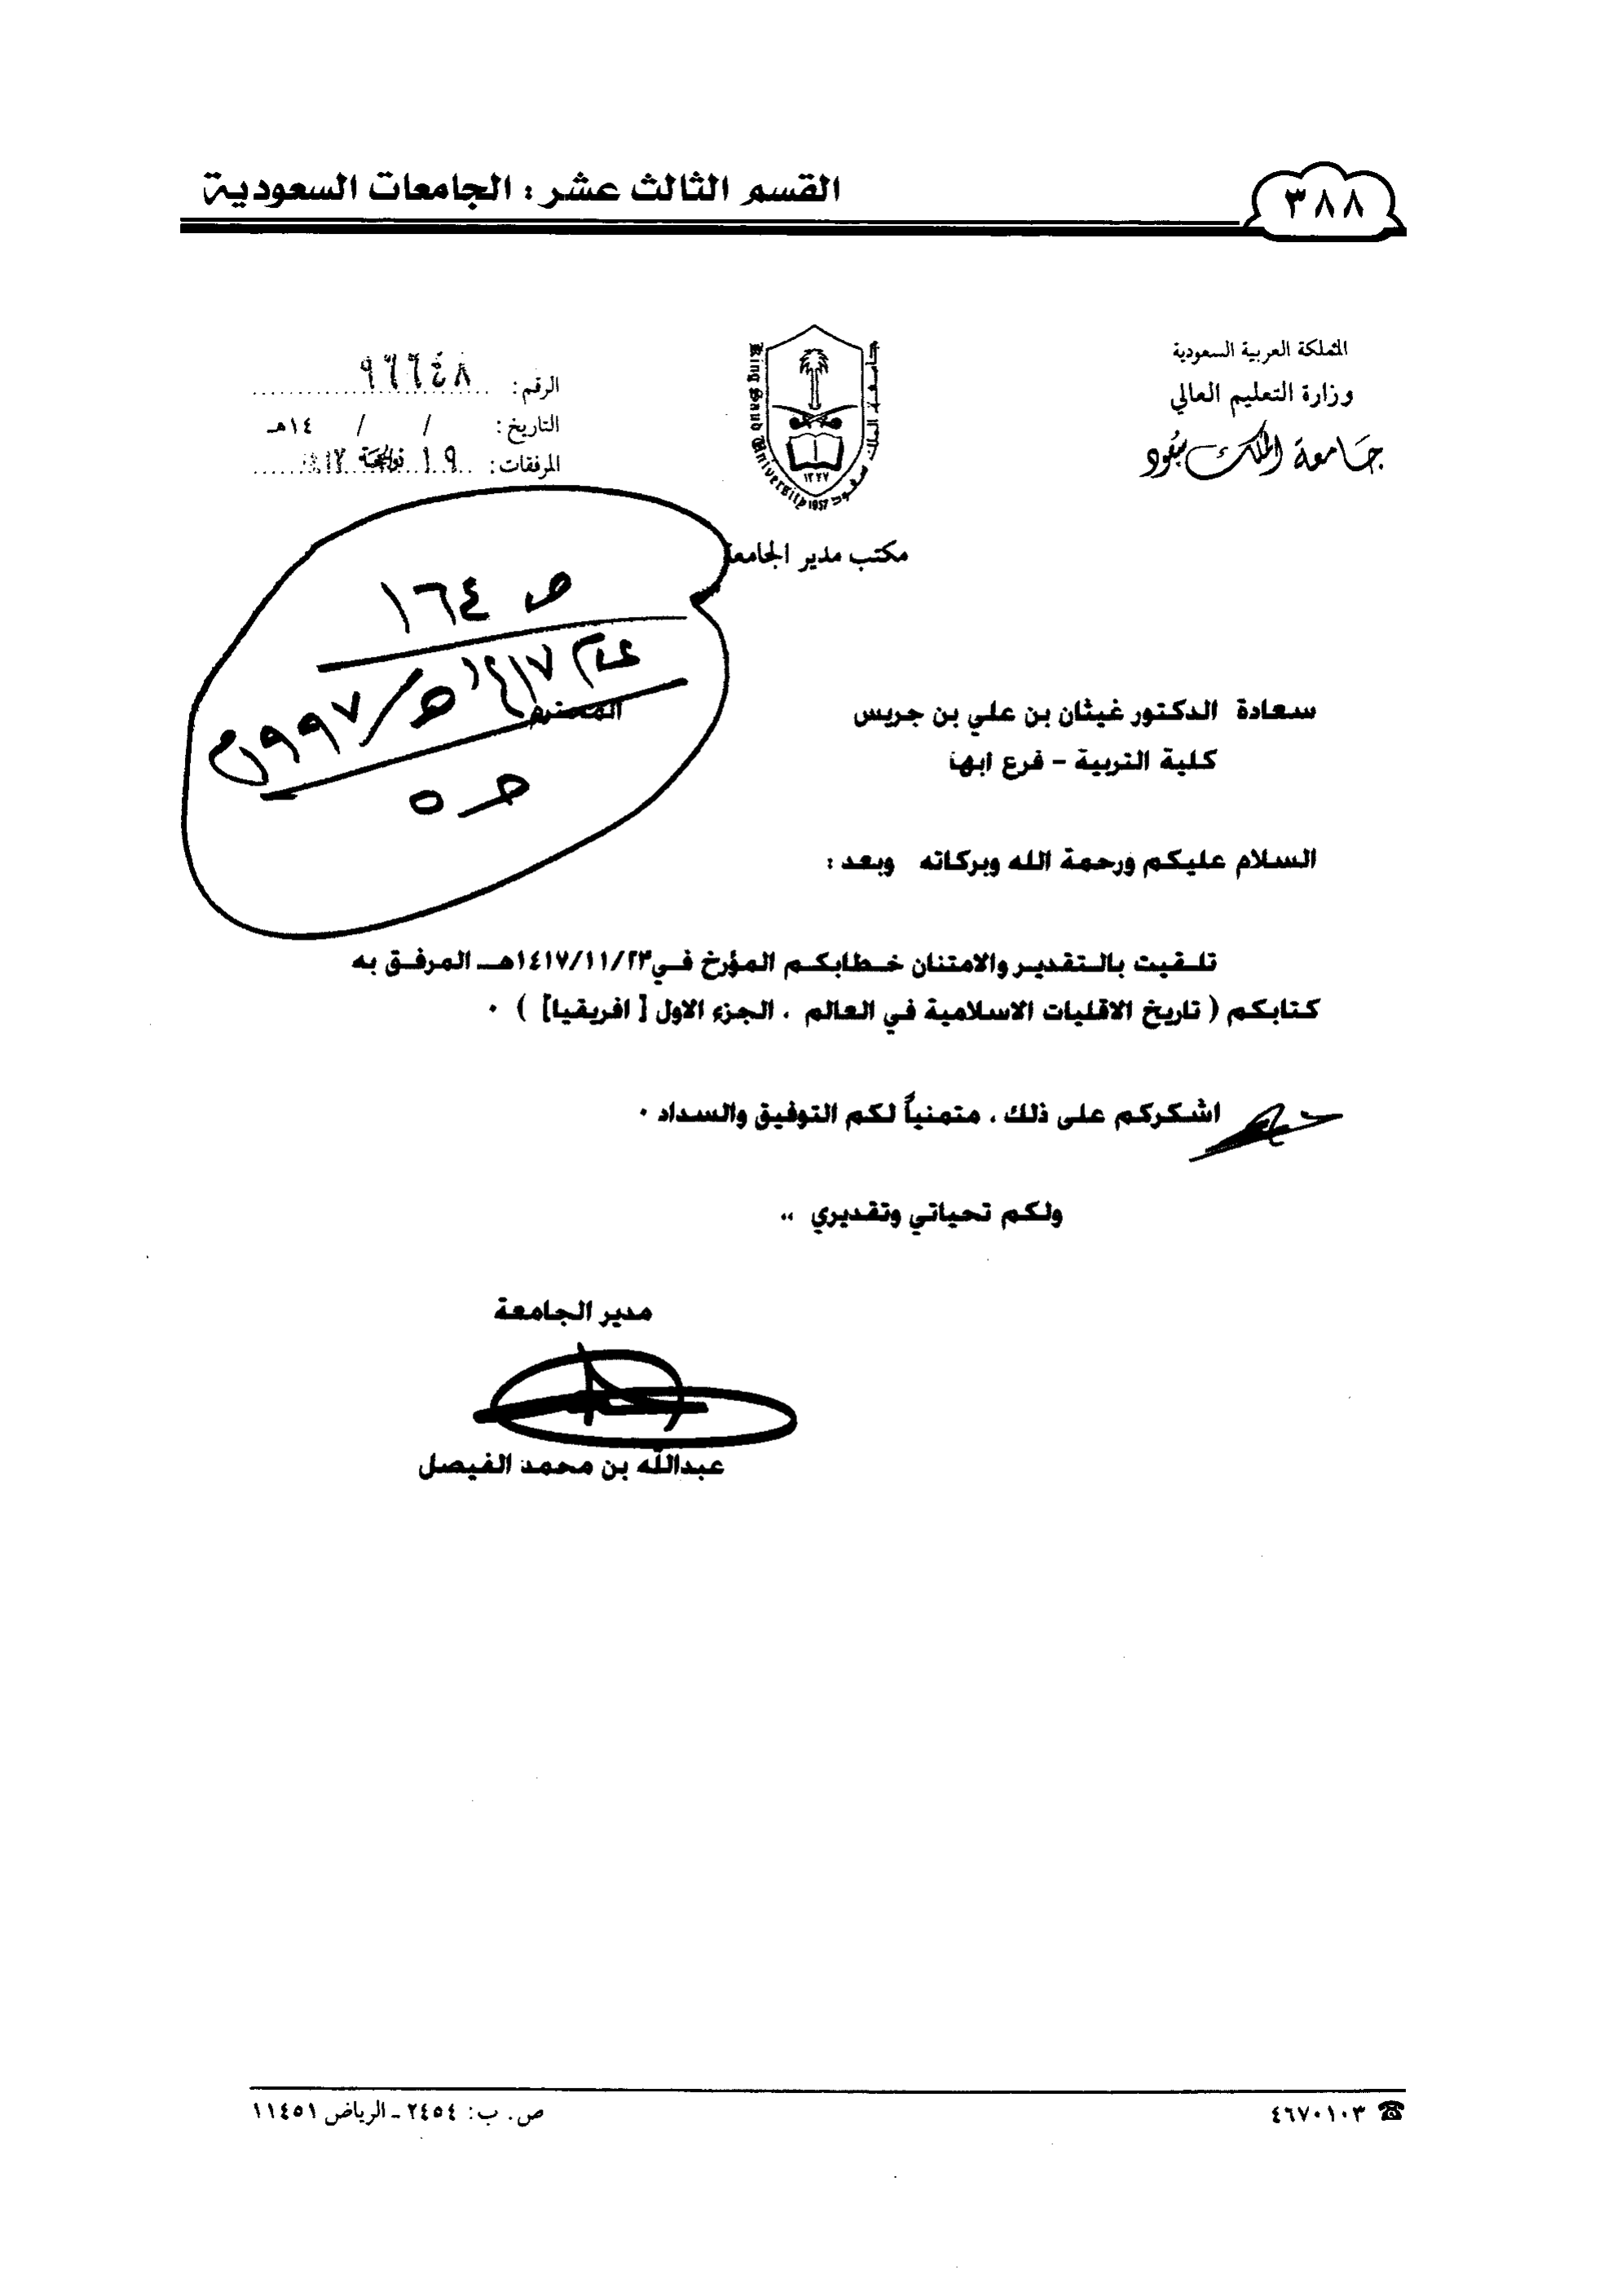 ٣٨٨
القسم الثالث عشر : الجامعات السعودية
المملكة العربية السعودية
وزارة التعليم العالي
جامعة الملك سعود
جامعة الملك سعود
King Saud University
١٣٧٧
1957
الرقم: ٩٦٦٤٨
التاريخ: / / ١٤هـ
المرفقات: ١٩ ذو الحجة
مكتب مدير الجامعة
ص ١٦٤
عام ١٤١٧هـ/١٩٩٧م
سعادة الدكتور غيثان بن علي بن جريس المحترم
كلية التربية - فرع ابها
السلام عليكم ورحمة الله وبركاته وبعد :
تلـقيت بالـتقديـر والامتنان خـطابكـم المؤرخ فـي١٤١٧/١١/٢٣هـ المرفـق به
كتابكم ( تاريخ الاقليات الاسلامية في العالم ، الجزء الاول [ افريقيا] ) ٠
اشكركم على ذلك ، متمنياً لكم التوفيق والسداد ٠
ولكم تحياتي وتقديري ،،
مدير الجامعة
عبدالله بن محمد الفيصل
☎ ٤٦٧٠١٠٣
ص. ب: ٢٤٥٤ ـ الرياض ١١٤٥١